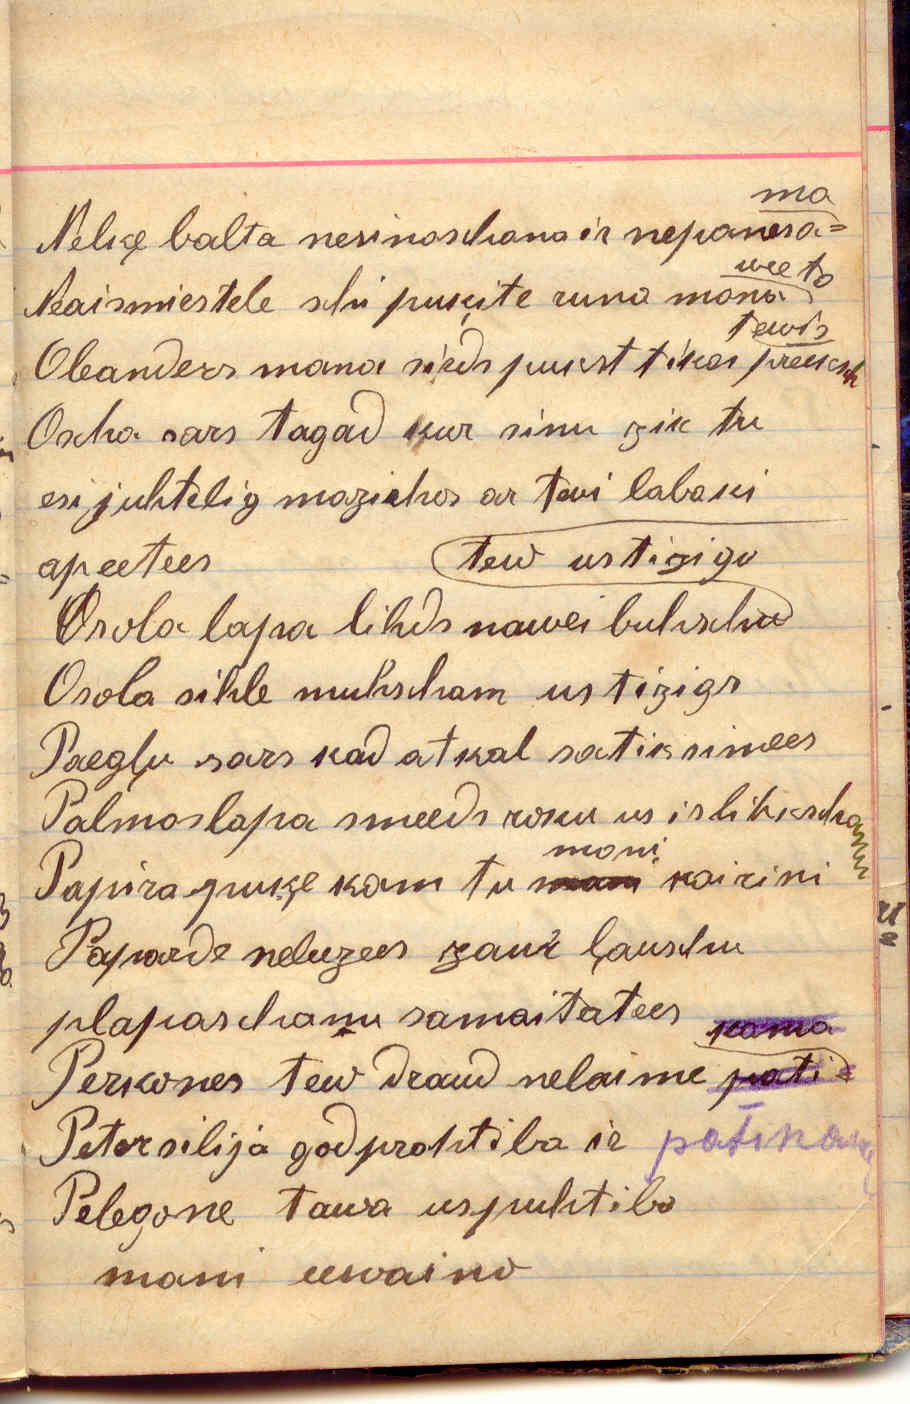 ma
Nelķe balta nesinaschana ir nepanesa=
weeto
Neaismirstele schi puķite runa mana
tewis
Oleanders mana sirds pukst tikai preeksch
Oscha sars tagad kur sinu zik tu
esi juhtelig mazischos ar tewi labaki
apeetees
tew ustizigu
Osola lapa lihds nawei buhschu
Osola sihle muhscham ustizigs
Paegļu sars kad atkal satiksimees
Palmas lapa smeeds roku us islihkschanu
mani
Papira puķe kam tu mani kairini
Paparde neluzees zaur ļauschu
plapaschanu samaitatees
kama
Perkones tew draud nelaime pati
Petersilija godprahtiba ir patikama
Pelegone tawa uspuhtiba
mani eewaino